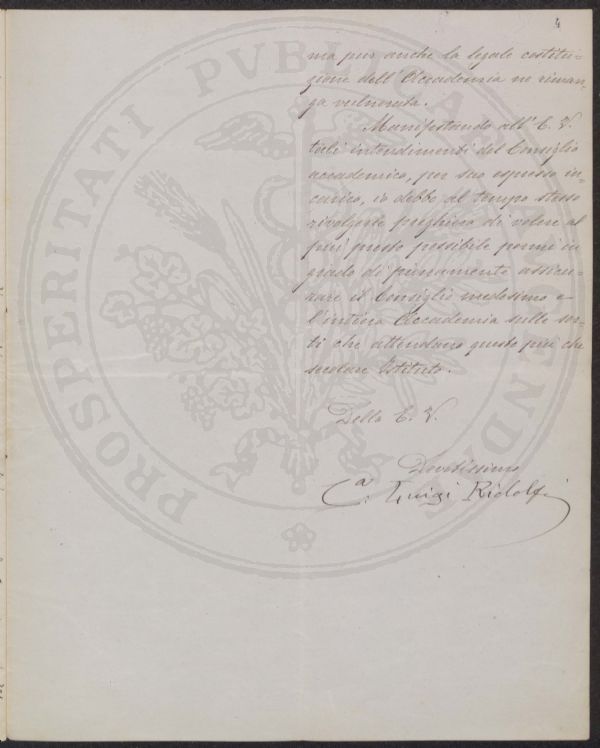 4
ma pur anche la legale costitu=
zione dell'Accademia ne riman=
ga vulnerata.
Manifestando all'E. V.
tali intendimenti del Consiglio
accademico, per suo espresso in=
carico, io debbo al tempo stesso
rivolgerle preghiera di volere al
più presto possibile pormi in
grado di pienamente assicu=
rare il Consiglio medesimo e
l'intiera Accademia sulle sor=
ti che attendano questo più che
secolare Istituto.
Della E. V.
Devotissimo
Luigi Ridolfi
PROSPERITATI PVBLICAE AVGENDAE